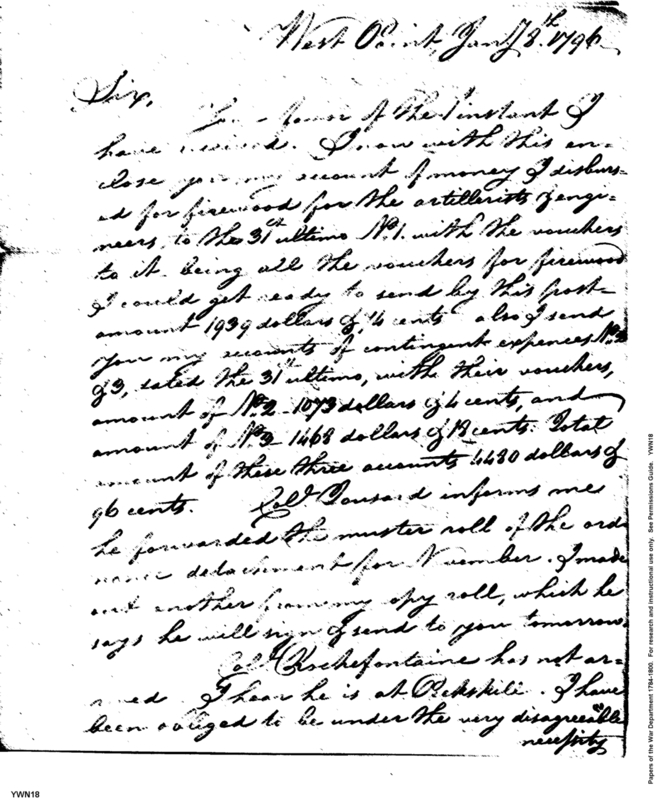 West Point, Jany 8.th 1796
Sir,
Your favor of the 1 instant I
have received. I now with this en=
close you my account of money I disburs=
ed for firewood for the artillerists & engi=
neers, to the 31st ultimo No. 1. with the vouchers
to it. being all the vouchers for firewood
I could get ready to send by this post=
amount 1939 dollars & cents also I send
you my accounts of contingent expences No. 2
& 3, dated the 31st ultimo, with their vouchers,
amount of No. 2 - 1073 dollars & 4 cents, and
amount of No. 3 1468 dollars & cents. Total
amount of these three accounts 4480 dollars &
96 cents. Coll. Tousard informs me
he forwarded the muster roll of the ord=
nance detachment for November. I made
out another from my copy roll, which he
says he will sign & send to you tomorrow
Coll. Rochefontaine has not ar=
rived I hear he is at Pekskill. I have
been obliged to be under the very disagreeable
necessity
YWN18
Papers of the War Department 1784-1800. For research and instructional use only. See Permissions Guide. YWN18